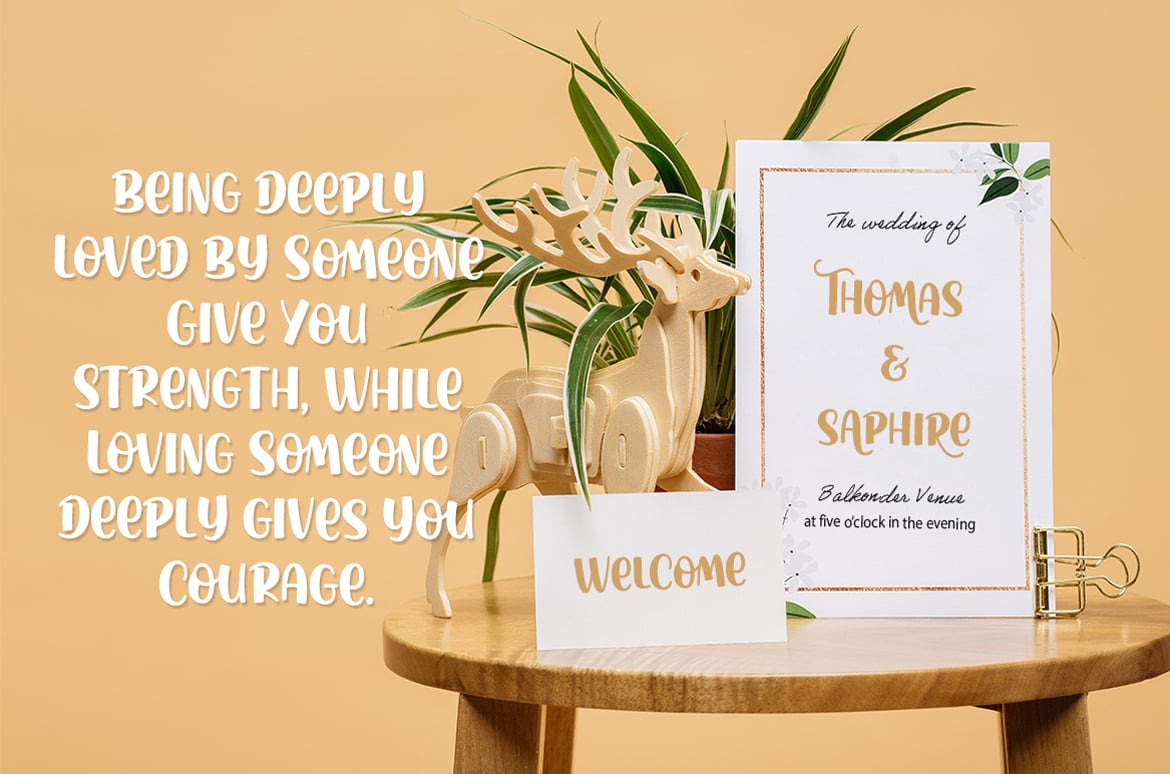 Being Deeply
Loved by Someone
Give You
Strength, While
Loving Someone
Deeply Gives You
Courage.
The wedding of
Thomas
&
Saphire
Balkonder Venue
at five o'clock in the evening
Welcome